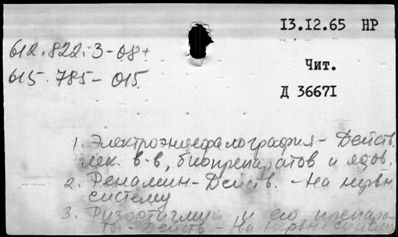 13.12.65 НР
612.822.3-08+
615.785-015
Чит.
Д 36671
1. Электроэнцефалография - Действ.
лек. в-в, биопрепаратов и ядов.
2. Фенамин - Действ. - На нервн.
систему
3. Физостигмин и его препара-
ты - Действ. - На нервн. систему